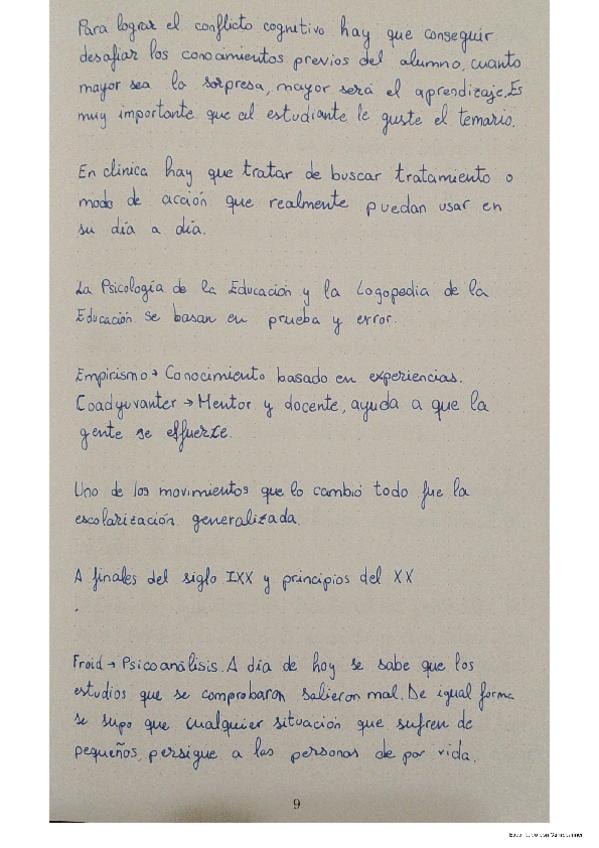 Para lograr el conflicto cognitivo hay que conseguir
desafiar los conocimientos previos del alumno, cuanto
mayor sea la sorpresa, mayor será el aprendizaje. Es
muy importante que al estudiante le guste el temario.
En clínica hay que tratar de buscar tratamiento o
modo de acción que realmente puedan usar en
su día a día.
La Psicología de la Educación y la Logopedia de la
Educación se basan en prueba y error.
Empirismo → Conocimiento basado en experiencias.
Coadyuvanter → Mentor y docente, ayuda a que la
gente se esfuerze.
Uno de los movimientos que lo cambió todo fue la
escolarización generalizada.
A finales del siglo IXX y principios del XX
.
Froid → Psicoanálisis. A día de hoy se sabe que los
estudios que se comprobaron salieron mal. De igual forma
se supo que cualquier situación que sufren de
pequeños, persigue a las personas de por vida.
9